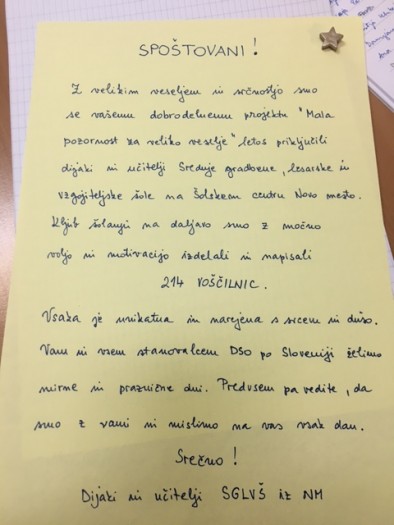 SPOŠTOVANI!
Z velikim veseljem in srčnostjo smo
se vašemu dobrodelnemu projektu "Mala
pozornost za veliko veselje" letos priključili
dijaki in učitelji Srednje gradbene, lesarske in
vzgojiteljske šole na Šolskem centru Novo mesto.
Kljub šolanju na daljavo smo z močno
voljo in motivacijo izdelali in napisali
214 VOŠČILNIC.
Vsaka je unikatna in narejena s srcem in dušo.
Vam in vsem stanovalcem DSO po Sloveniji želimo
mirne in praznične dni. Predvsem pa vedite, da
smo z vami in mislimo na vas vsak dan.
Srečno!
Dijaki in učitelji SGLVŠ iz NM